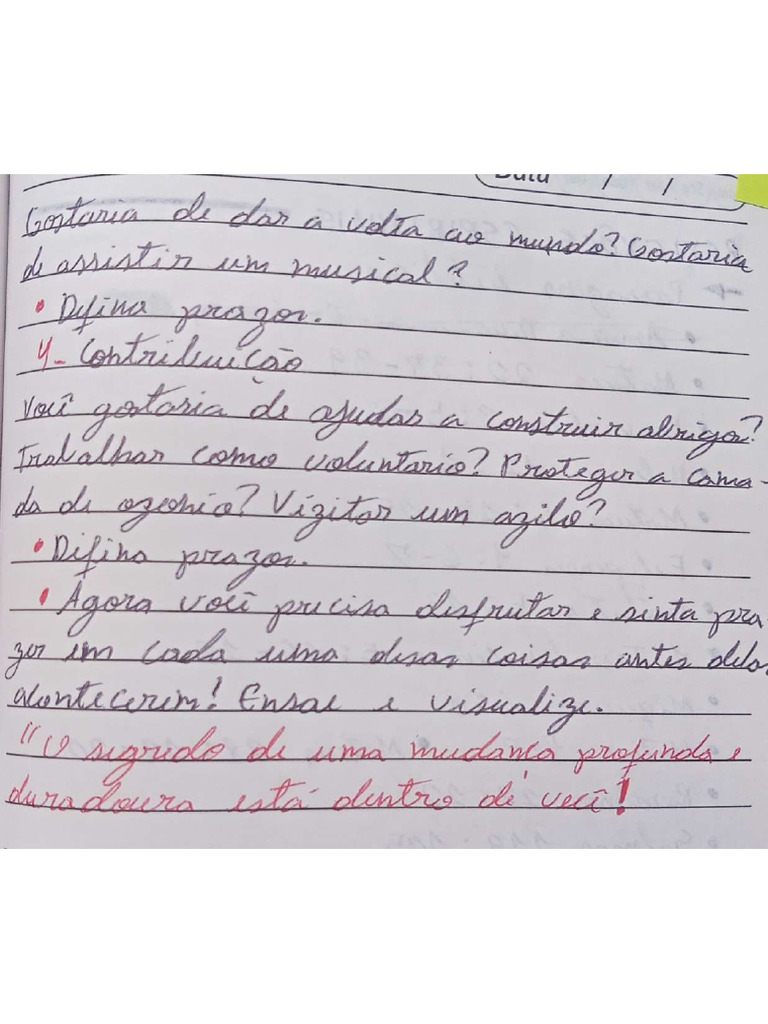 Data / /
Gostaria de dar a volta ao mundo? Gostaria
de assistir um musical?
• Difina prazos.
4- Contribuição
Você gostaria de ajudar a construir abrigos?
Trabalhar como voluntario? Proteger a cama-
da de ozonio? Vizitar um azilo?
• Difina prazos.
• Agora você precisa desfrutar e sinta pra-
zer em cada uma desas coisas antes delas
acontecerem! Ensae e visualize.
"O segredo de uma mudança profunda e
duradoura está dentro de você!